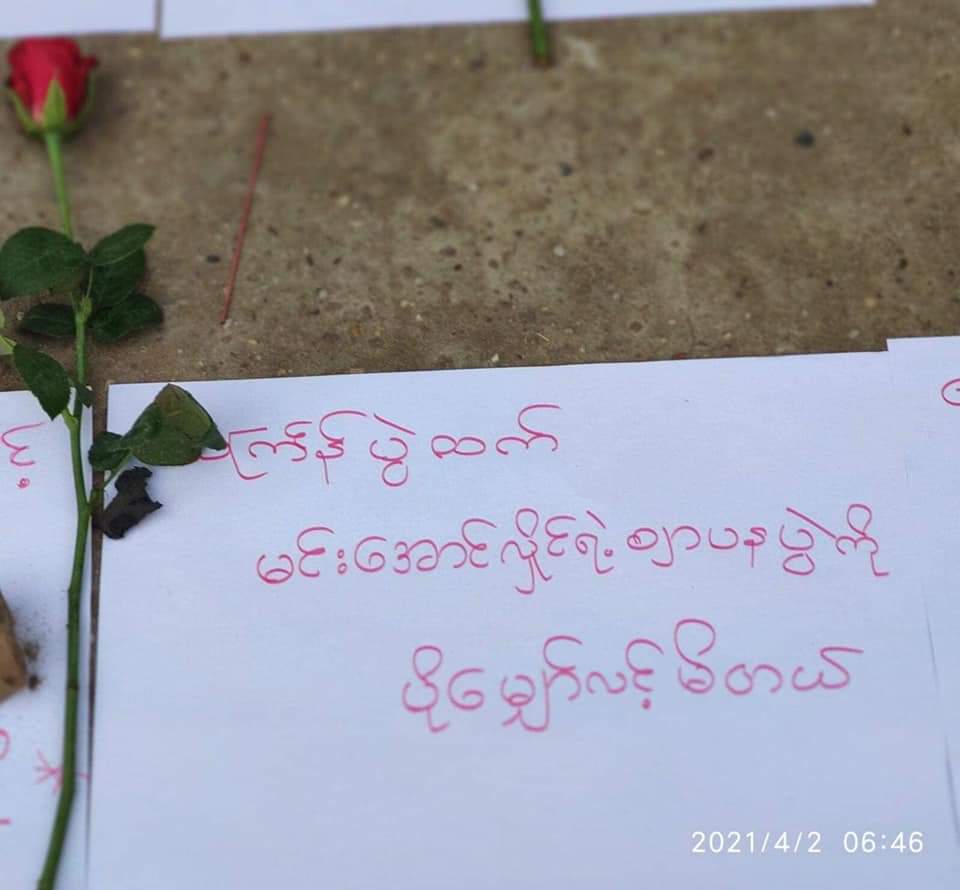 သင်္ကြန်ပွဲထက်
မင်းအောင်လှိုင်ရဲ့ ဈာပနပွဲကို
ပိုမျှော်လင့်မိတယ်
2021/4/2 06:46